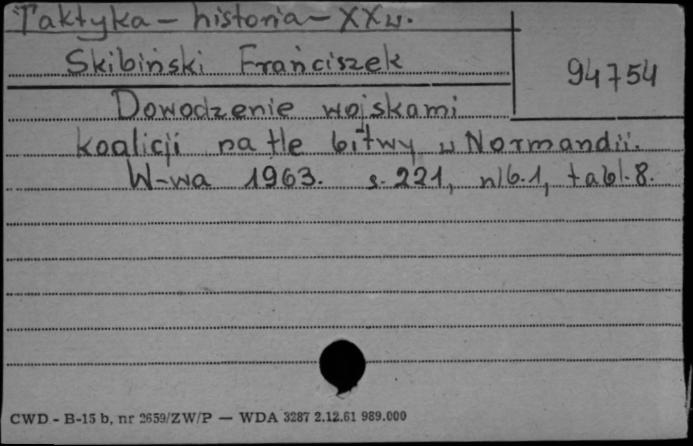 Taktyka – historia – XX w.
Skibiński Franciszek
94754
Dowodzenie wojskami
koalicji na tle bitwy w Normandii.
W-wa 1963. s. 221, nlb.1, tabl. 8.
CWD - B-15 b, nr 2659/ZW/P — WDA 3287 2.12.61 989.000